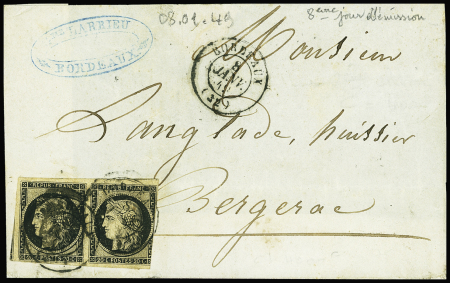 08.01.49
8eme jour d'émission
LARRIEU
BORDEAUX
BORDEAUX
8
JANV.
49
(32)
Monsieur
Langlade, huissier
Bergerac
REPUB. FRANC.
REPUB. FRANC.
20 C. POSTES 20 C.
20 C. POSTES 20 C.